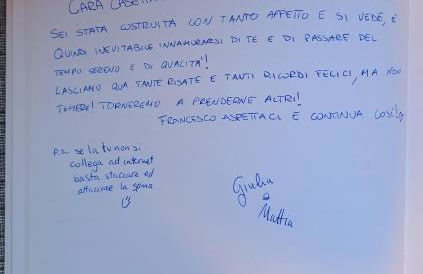 CARA CASETTA
SEI STATA COSTRUITA CON TANTO AFFETTO E SI VEDE, È
QUINDI INEVITABILE INNAMORARSI DI TE E DI PASSARE DEL
TEMPO SERENO E DI QUALITÀ!
LASCIAMO QUA TANTE RISATE E TANTI RICORDI FELICI, MA NON
TEMERE! TORNEREMO A PRENDERNE ALTRI!
FRANCESCO ASPETTACI E CONTINUA COSÌ!
P.S. se la tv non si
collega ad internet
basta staccare ed
attaccare la spina
Giulia
e
Mattia